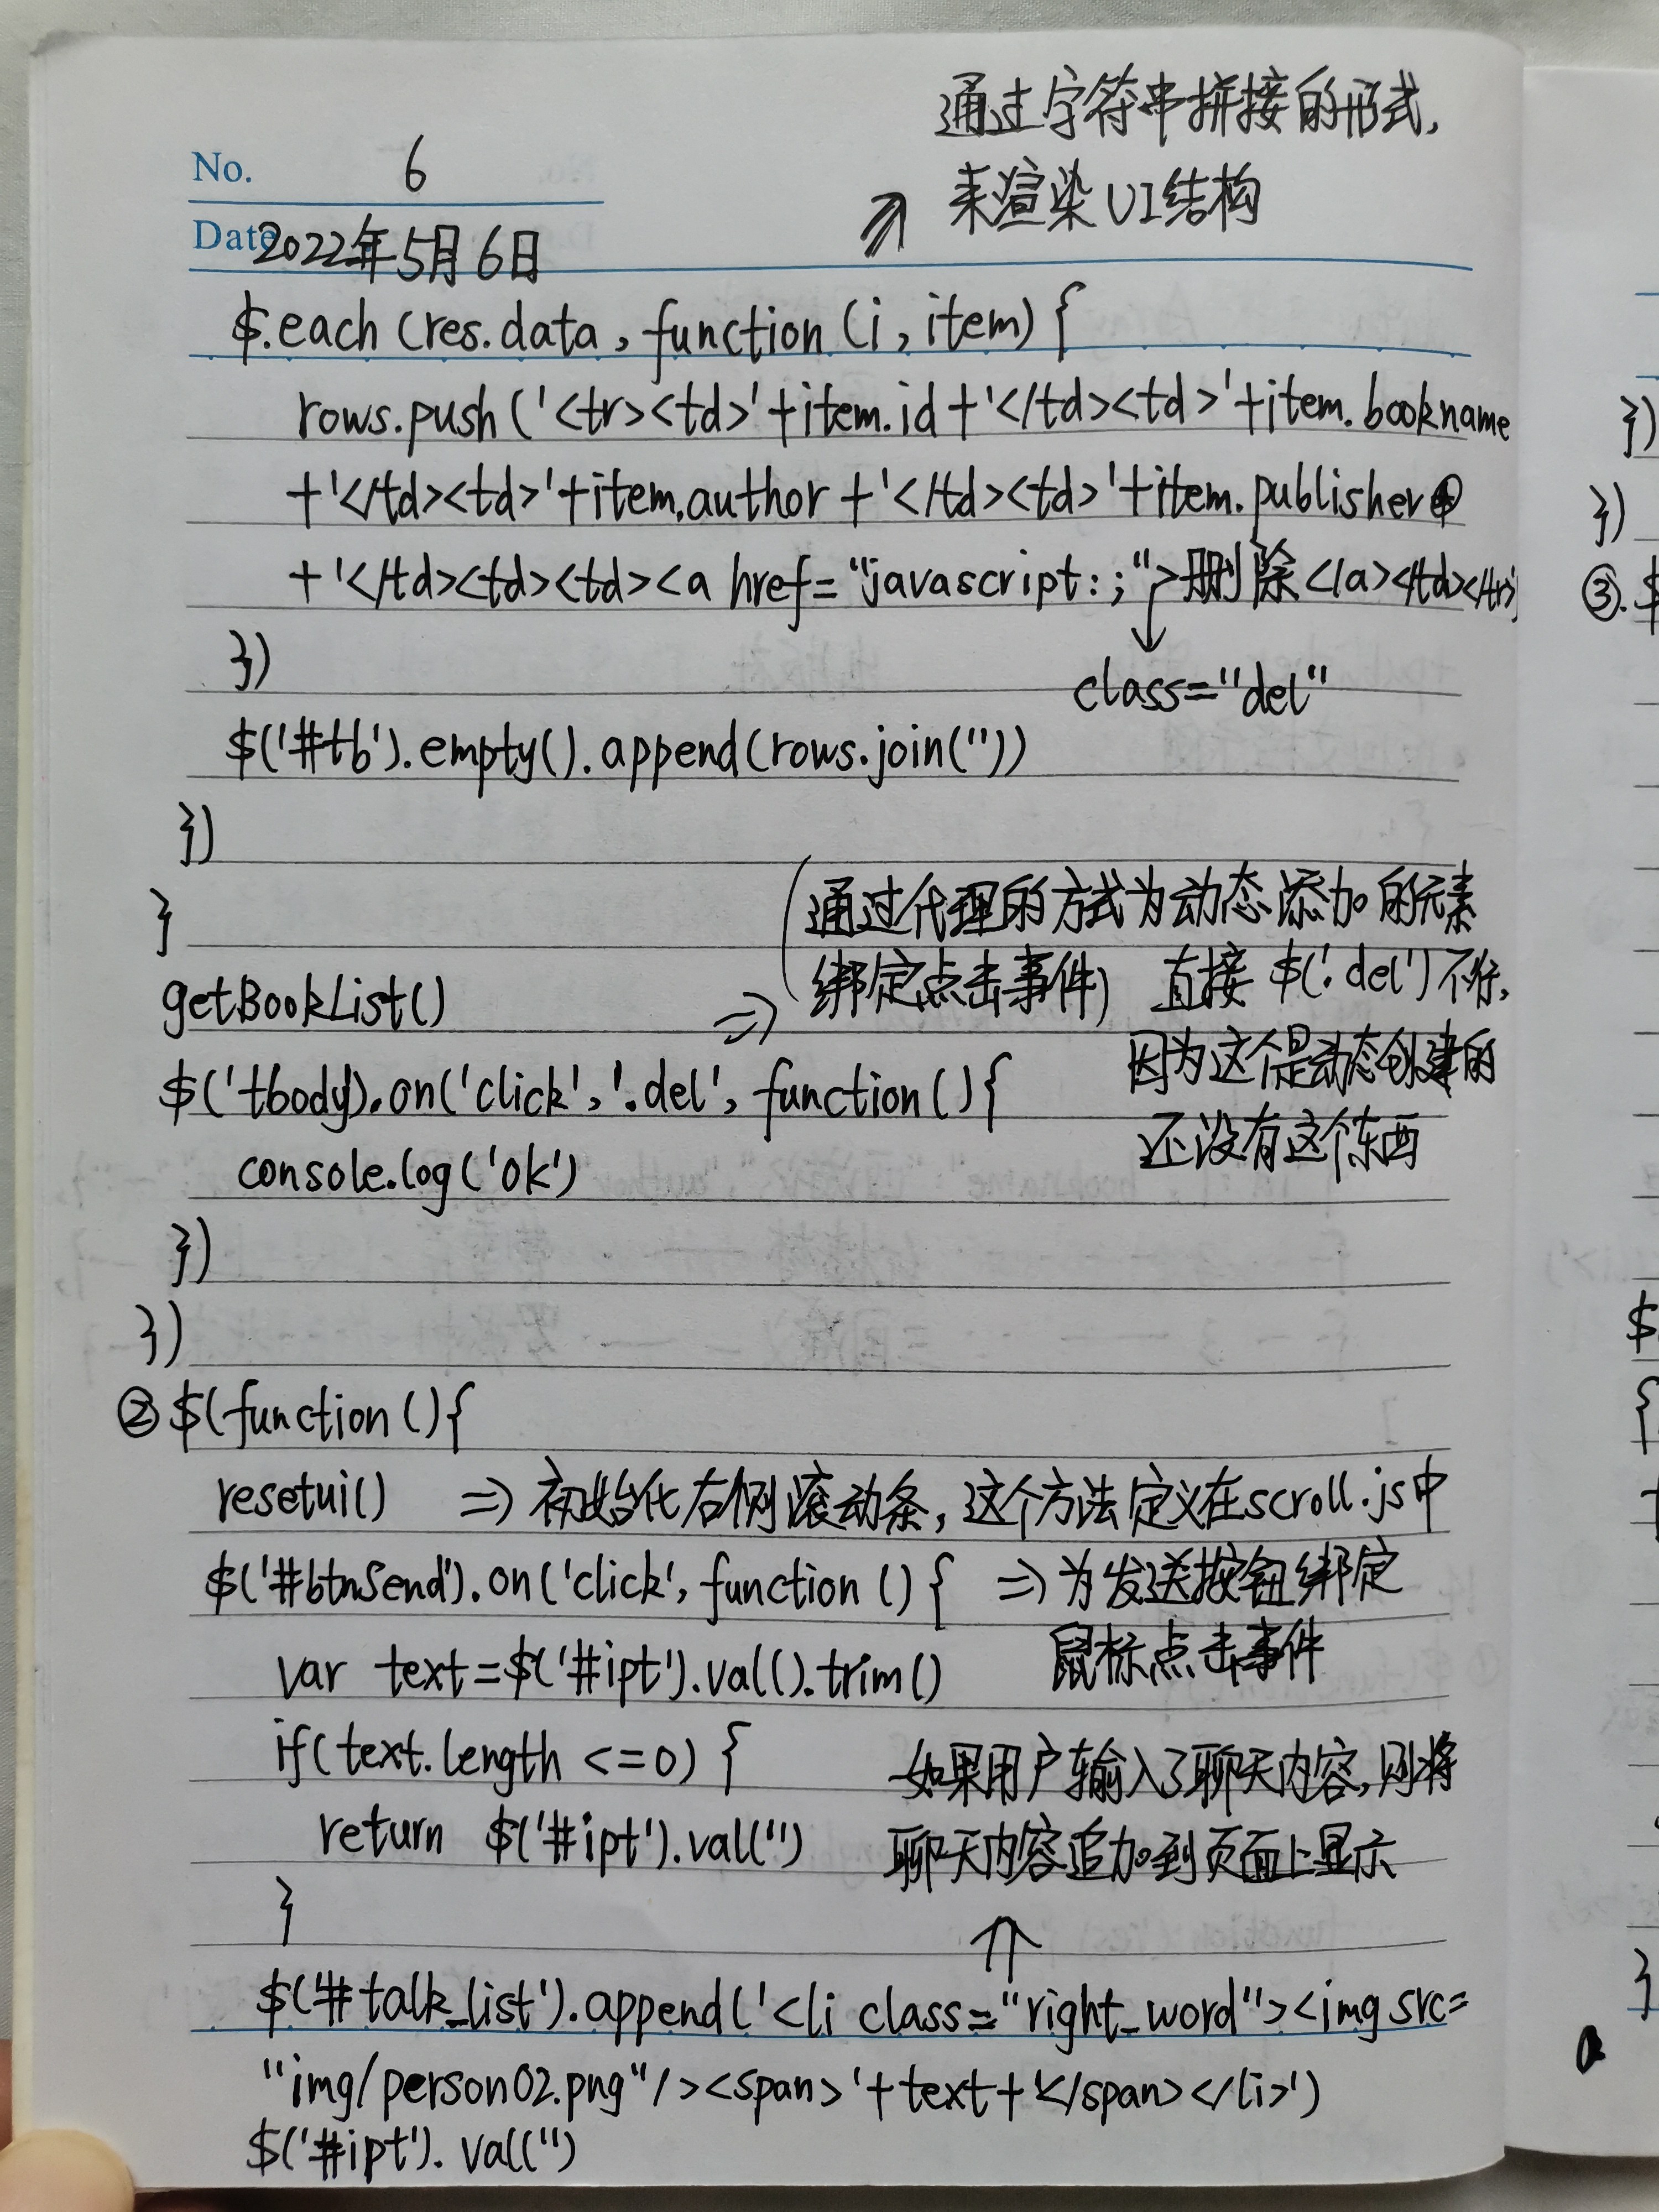 通过字符串拼接的形式,
来渲染UI结构
No. 6
Date 2022年5月6日
$.each (res.data, function (i, item) {
rows.push('<tr><td>'+item.id+'</td><td>'+item.bookname
+'</td><td>'+item.author+'</td><td>'+item.publisher
+'</td><td><td><a href="javascript:;">删除</a></td></tr>
})
class="del"
$('#tb').empty().append(rows.join(''))
})
}
(通过代理的方式为动态添加的元素
绑定点击事件) 直接 $('.del')不行,
getBookList() =>
因为这个是动态创建的
$('tbody').on('click', '.del', function () {
还没有这个东西
console.log('ok')
})
})
② $(function () {
resetui() => 初始化右侧滚动条, 这个方法定义在scroll.js中
$('#btnSend').on('click', function () { => 为发送按钮绑定
鼠标点击事件
var text=$('#ipt').val().trim()
if(text.length <=0) {
如果用户输入了聊天内容, 则将
return $('#ipt').val('')
聊天内容追加到页面上显示
}
$('#talk_list').append('<li class="right_word"><img src=
"img/person02.png"/><span>'+text+'</span></li>')
$('#ipt').val('')
})
})
③. $
$
{
}